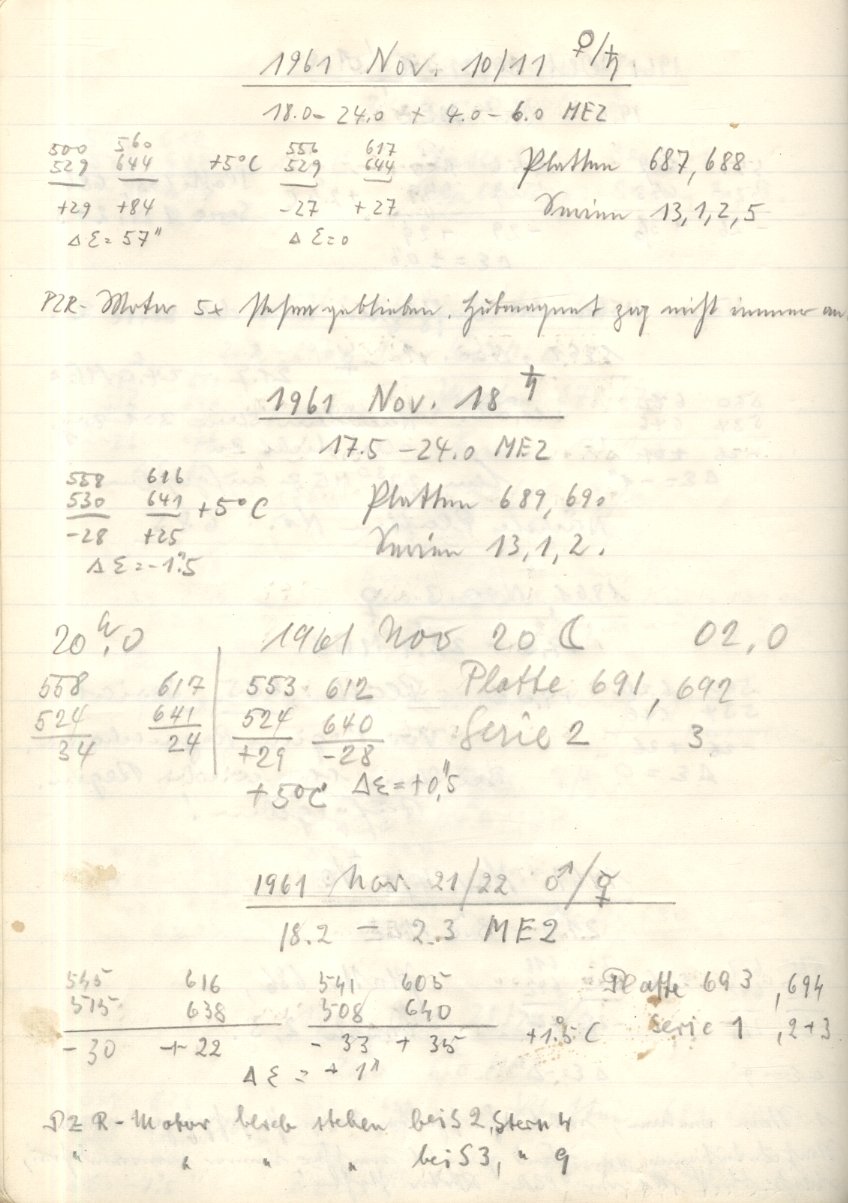 1961 Nov. 10/11 ♀/♄
18.0 - 24.0 + 4.0 - 6.0 MEZ
500 560 556 617
529 644 +5°C 529 644 Platten 687, 688
+29 +84 -27 +27 Serien 13, 1, 2, 5
Δε = 57" Δε = 0
PZR-Motor 5x stehen geblieben. Hubmagnet zog nicht immer an.
1961 Nov. 18 ♄
17.5 - 24.0 MEZ
558 616
530 641 +5°C Platten 689, 690
-28 +25 Serien 13, 1, 2.
Δε = -1".5
20h,0 1961 Nov 20 ☾ 02,0
558 617 553 612 Platte 691, 692
524 641 524 640 Serie 2 3
34 24 +29 -28
+5°C Δε = +0",5
1961 Nov. 21/22 ♂/☿
18.2 - 2.3 MEZ
545 616 541 605 Platte 693, 694
515 638 508 640 Serie 1, 2+3
-30 +22 -33 +35 +1°.5 C
Δε = + 1"
PZR-Motor blieb stehen bei S2, Stern 4
" " " " bei S3, " 9